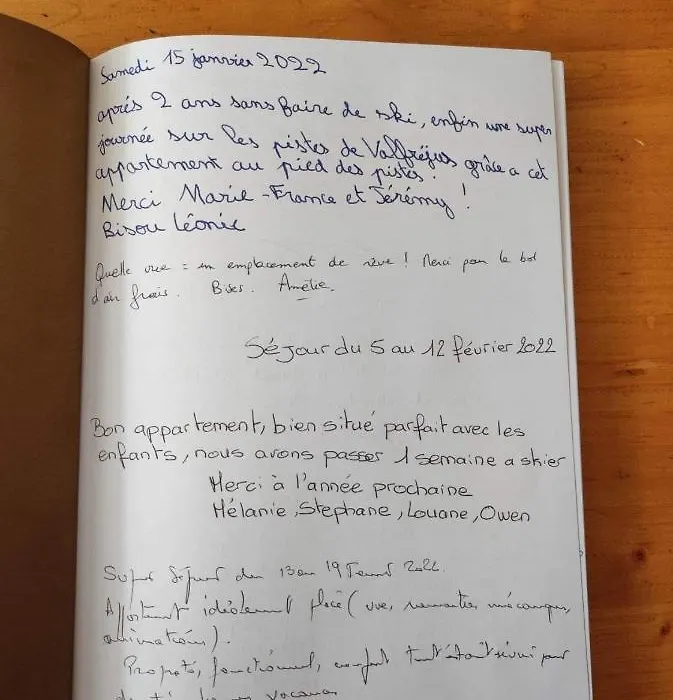 Samedi 15 janvier 2022
après 2 ans sans faire de ski, enfin une super
journée sur les pistes de Valfréjus grâce a cet
appartement au pied des pistes.
Merci Marie-France et Jérémy !
Bisou Léonie
Quelle vue = un emplacement de rêve ! Merci pour le bol
d'air frais. Bises. Amélie.
Séjour du 5 au 12 février 2022
Bon appartement, bien situé parfait avec les
enfants, nous avons passer 1 semaine a skier
Merci à l'année prochaine
Mélanie, Stephane, Louane, Owen
Super Séjour du 13 au 19 Février 2022.
Appartement idéalement placé (vue, remontées mécaniques,
animations).
Propreté, fonctionnel, confort tout était réuni pour
vacances